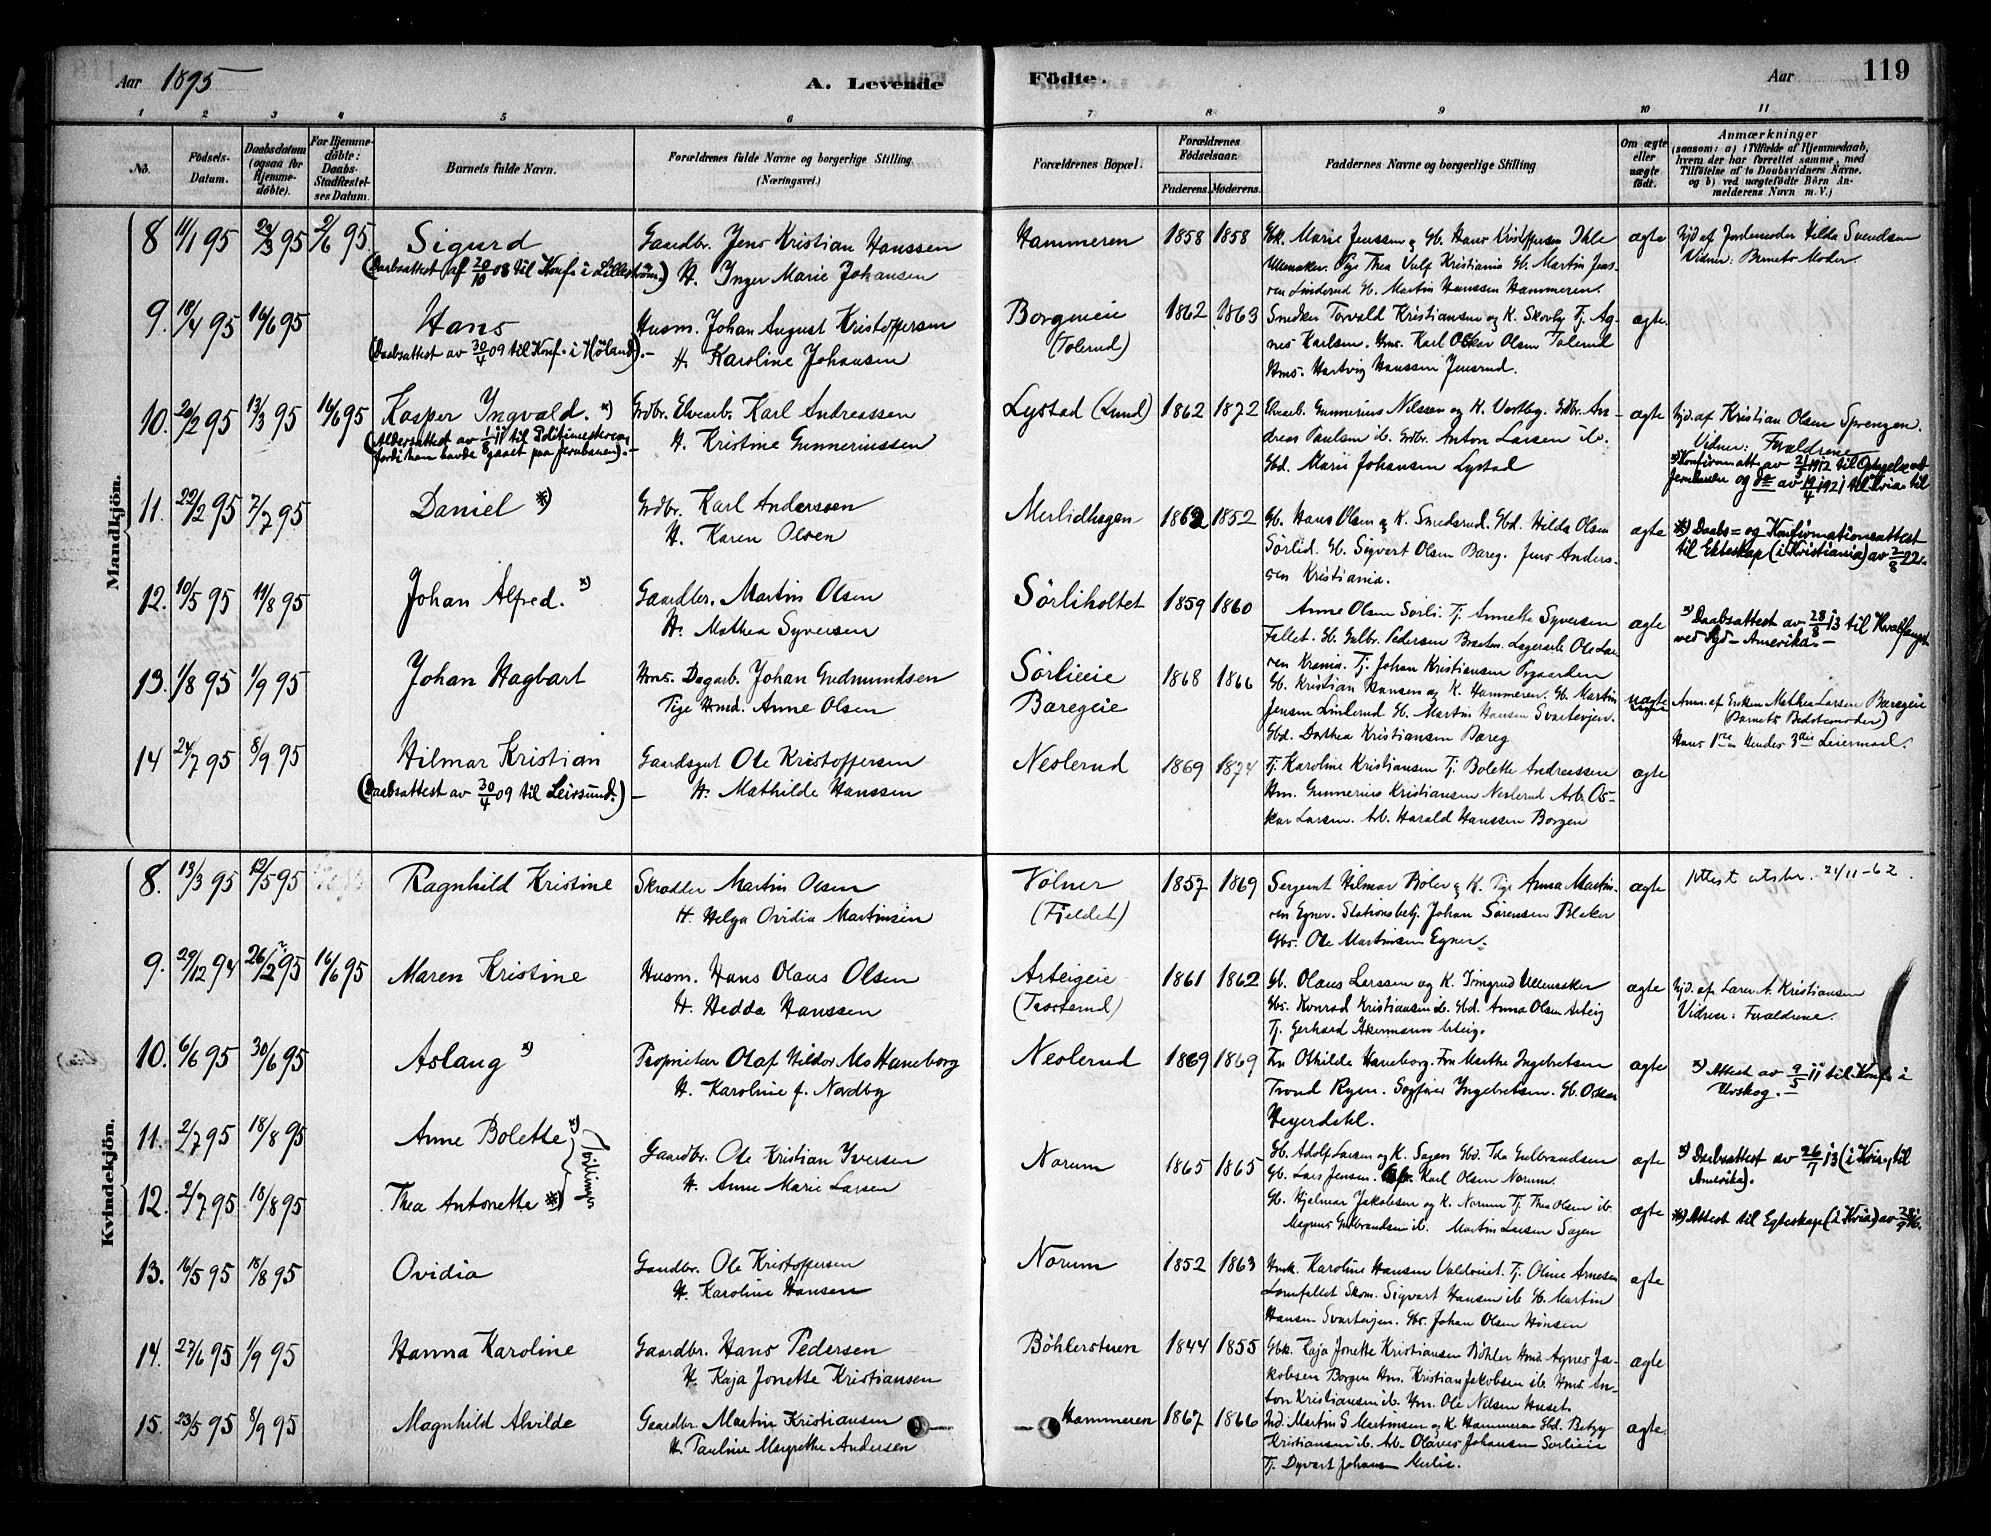 Aar 1895 A. Levende Födte. Aar 119
1 2 3 4 5 6 7 8 9 10 11
No.
Födsels-Datum.
Daabsdatum (ogsaa for Hjemme-döbte).
For Hjemme-döbte: Daabs-Stadfæstel-ses Datum.
Barnets fulde Navn.
Forældrenes fulde Navne og borgerlige Stilling. (Næringsvei.)
Forældrenes Bopæl.
Forældrenes Födselsaar.
Faderens. Moderens.
Faddernes Navne og borgerlige Stilling
Om ægte eller uægte födt.
Anmærkninger
(saasom: a) i Tilfælde af Hjemmedaab, hvem der har forrettet samme, med Tilföielse af to Daabsvidners Navne, og b) ved uægtefödte Börn An-melderens Navn m. V.)
Mandkjön.
8 11/1 95 23/3 95 2/6 95 Sigurd Gaardbr. Jens Kristian Hanssen Hammeren 1858 1858 Gbk. Marie Jenssen og Gb. Hans Kristoffersen Ihle ægte Hjd. af Jordemoder Hilda Svendsen
(Daabsattest af 20/10 08 til Konf. i Lilleström.) H. Inger Marie Johansen Ullensaker. Pige Thea Wulf Kristiania Gb. Martin Jens- Vidner: Barnets Moder.
sen Linderud Gb. Martin Hanssen Hammeren.
9. 18/4 95 16/6 95 Hans Husm. Johan August Kristoffersen Borgeneie 1862 1863 Snedker Torvald Kristiansen og K. Skovby Tj. Ag- ægte.
(Daabsattest av 30/4 09 til Konf. i Höland). H. Karoline Johansen (Tolerud) nes Karlsen. Gms. Karl Oskar Olsen Tolerud
Hms. Hartvig Hanssen Jensrud.
10. 20/2 95 13/3 95 16/6 95 Kasper Ingvald. x) Grdbr. Elvearb. Karl Andreassen Lystad (Lund) 1862 1872 Elvearb. Gunnerius Nilssen og K. Vestby. Grdbr. An- ægte Hjd. af Kristian Olsen Sprengen.
(Aldersattest av 1/8 11 til Politimesteren H. Kristine Gunneriussen dreas Paulsen ib. Grdbr. Anton Larsen ib. Vidner: Forældrene
fordi han havde gaaet paa Jernbanen). Gbd. Marie Johansen Lystad x) Konfirmatt. av 21/5 1912 til Optagelse ved
Jernbanen og do av 19/4 1921 til Kria til
11. 22/2 95 7/7 95 Daniel x) Grdbr. Karl Anderssen Merlidhagen 1862 1852 Gb. Hans Olsen og K. Smedsrud. Gbd. Hilda Olsen ægte x) Daabs= og Konfirmationsattest
H. Karen Olsen Sörlid. Gb. Sigvart Olsen Bareg. Jens Anders- til Ekteskap (i Kristiania) av 2/8 22.
sen Kristiania.
12. 10/5 95 11/8 95 Johan Alfred. x) Gaardbr. Martin Olsen Sörliholtet 1859 1860 Anne Olsen Sörli. Tj. Annette Syversen ægte x) Daabsattest av 28/8 13 til Hvalfangst
H. Mathea Syversen Fallet. Gb. Gulbr. Pedersen Braaten. Lagerarb. Ole Lar- ved Syd-Amerika.
sen Krania. Tj. Johan Kristiansen Nygaarden
13. 1/8 95 1/9 95 Johan Hagbart Hms. Dagarb. Johan Gudmundsen Sörlieie 1868 1866 Gb. Kristian Hansen og K. Hammeren. Gb. Martin uægte Anm. af Enken Mathea Larsen Baregeie
Pige Hmd. Anne Olsen Baregeie Jensen Linlerud Gb. Martin Hansen Svartevjen. (Barnets Bedstemoder)
Gbd. Dorthea Kristiansen Bareg Hans 1ste Hendes 3die Leiermaal.
14 24/7 95 8/9 95 Hilmar Kristian Gaardsgut Ole Kristoffersen Neslerud 1869 1874 Tj. Karoline Kristiansen Tj. Bolette Andreassen ægte
(Daabsattest av 30/4 09 til Leirsund.) H. Mathilde Hanssen Hm. Gunnerius Kristiansen Neslerud Arb. Os-
kar Larsen. Arb. Harald Hanssen Borgen
Kvindekjön.
8. 13/3 95 12/5 95 Ragnhild Kristine Skrædder Martin Olsen Volner 1857 1869 Sergeant Hilmar Böler og K. Pige Anna Martin- ægte Attest utsbr. 24/11-62.
H. Helga Ovidia Martinsen (Fjeldet) sen Egner. Stationsbetj. Johan Sörensen Blaker
Gbs. Ole Martinsen Egner.
9. 29/12 94 26/2 95 16/6 95 Maren Kristine Husm. Hans Olaus Olsen Arteigeie 1861 1862 Gb. Olaus Larssen og K. Ullensaker ægte Hjd. af Laren A. Kristiansen
H. Hedda Hanssen Gbs. Konrad Kristiansen ib. Gbd. Anna Olsen Arteig Vidner: Forældrene.
Tj. Gerhard Akermann Arteig.
10. 6/6 95 30/6 95 Aslaug x) Proprietær Olaf Hildor Ms Haneborg Neslerud 1869 1869 Fru Othilde Haneborg. Fru Marthe Ingebretsen ægte x) Attest av 9/5 11 til Konf. i
H. Karoline f. Nordby Trond Ryen. Sagfører Ingebretsen. Gb. Oskar Urskog.
Heyerdahl.
11. 2/7 95 18/8 95 Anne Bolette x) Tvillinger Gaardbr. Ole Kristian Iversen Norum 1865 1865 Gb. Adolf Larsen og K. Sagen Gbd. Ida Gulbrandsen ægte x) Daabsattest av 26/7 13 (i Kria, til
H. Anne Marie Larsen Gb. Lars Jensen. Karl Olsen Norum. Amerika).
12. 2/7 95 18/8 95 Thea Antonette x) Gb. Hjalmar Jakobsen og K. Norum Tj. Thea Olsen ib. ægte x) Attest til Egteskap (i Kria) av
Magnus Gulbrandsen ib. Martin Larsen Sagen
13. 16/5 95 18/8 95 Ovidia Gaardbr. Ole Kristoffersen Norum 1852 1863 Hmk. Karoline Hansen Valdveiet. Tj. Oline Arnesen ægte
H. Karoline Hansen Lomfallet Skom. Sigvart Hansen ib Gb. Martin
Hansen Svartevjen. Gbs. Johan Olsen Hönsen
14. 27/6 95 1/9 95 Hanna Karoline Gaardbr. Hans Pedersen Böhlerstuen 1844 1855 Gbk. Kaja Jonette Kristiansen Böhler Hmd. Agnes Ja- ægte
H. Kaja Jonette Kristiansen kobsen Borgen Hm. Kristian Jakobsen ib. Hms. An-
ton Kristiansen ib. Hm. Ole Nilsen Huset
15. 23/5 95 8/9 95 Magnhild Alvilde Gaardbr. Martin Kristiansen Hammeren 1867 1866 Ind. Martin G Martinsen og K. Hammeren Gbd. Betzy ægte.
H. Pauline Margrethe Andersen Kristiansen ib. Arb. Olaves Johansen Sörlieie
Tj. Dyvart Johansen Merlie.